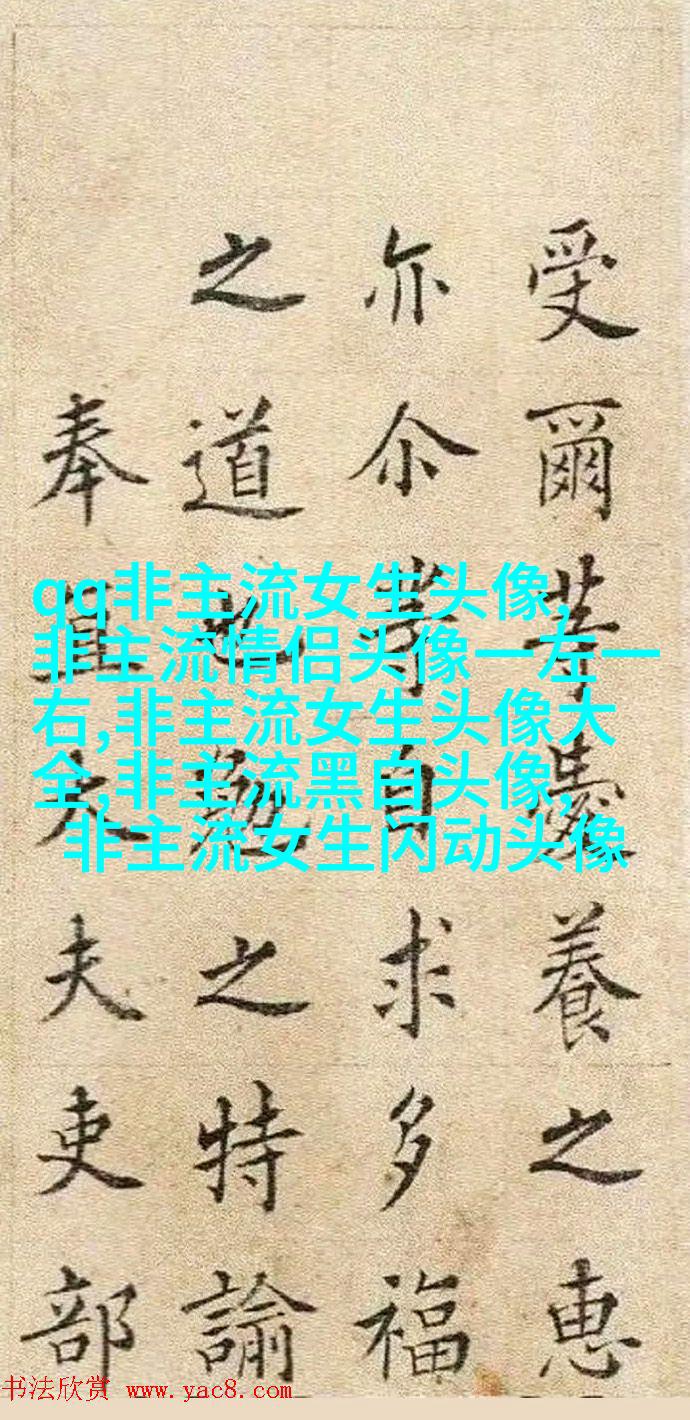 受爾等養之惠
亦尒等自求多福
之道也勉之特諭
奉直大夫吏部
qq非主流女生头像,
非主流情侣头像一左一
右,非主流女生头像大
全,非主流黑白头像,
非主流女生闪动头像
书法欣赏 www.yac8.com